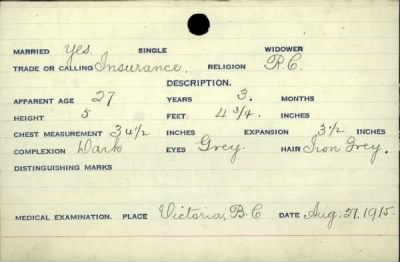 MARRIED Yes. SINGLE WIDOWER
TRADE OR CALLING Insurance. RELIGION R.C.
DESCRIPTION.
APPARENT AGE 27 YEARS 3. MONTHS
HEIGHT 5 FEET 4 3/4. INCHES
CHEST MEASUREMENT 34 1/2 INCHES EXPANSION 3 1/2 INCHES
COMPLEXION Dark EYES Grey. HAIR Iron Grey.
DISTINGUISHING MARKS
MEDICAL EXAMINATION. PLACE Victoria, B.C DATE Aug. 27. 1915.